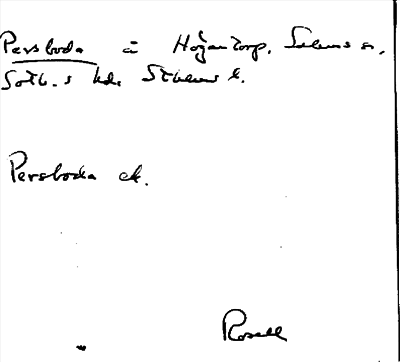 Persboda ä Högantorp, Salems sn,
Soth.s hd. Sthlms l.
Persboda ek.
Rosell